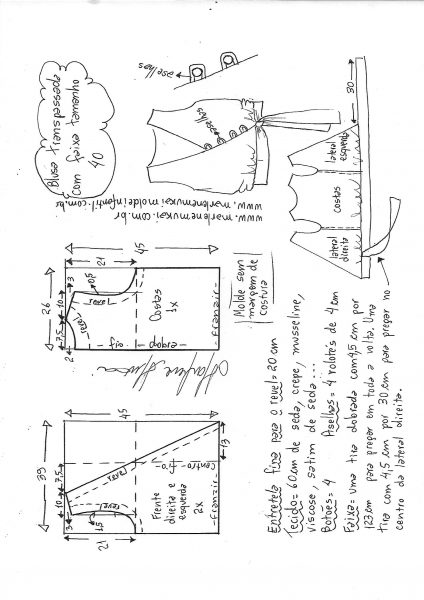 Blusa transpassada
com faixa tamanho
40
aselhas
aselhas
www.marlenemukai.com.br
www.marlenemukaimoldeinfantil.com.br
30
lateral
esquerda
costas
lateral
direita
45
21
26
10
7,5
3
2
0,5
revel
revel
Costas
1x
dobra
fio
franzir
Molde sem
margem de
costura
45
39
21
10
7,5
3
1,5
13
revel
revel
Centro
fio
Frente
direita e
esquerda
2x
franzir
Entretela fina para o revel= 20 cm
Tecido= 60cm de seda, crepe, musseline,
viscose, satim de seda...
Botões= 4 Aselhas= 4 rolotês de 4 cm
Faixa= uma tira dobrada com 4,5 cm por
123cm para pregar em toda a volta. Uma
tira com 4,5 cm por 30 cm para pregar no
centro da lateral direita.